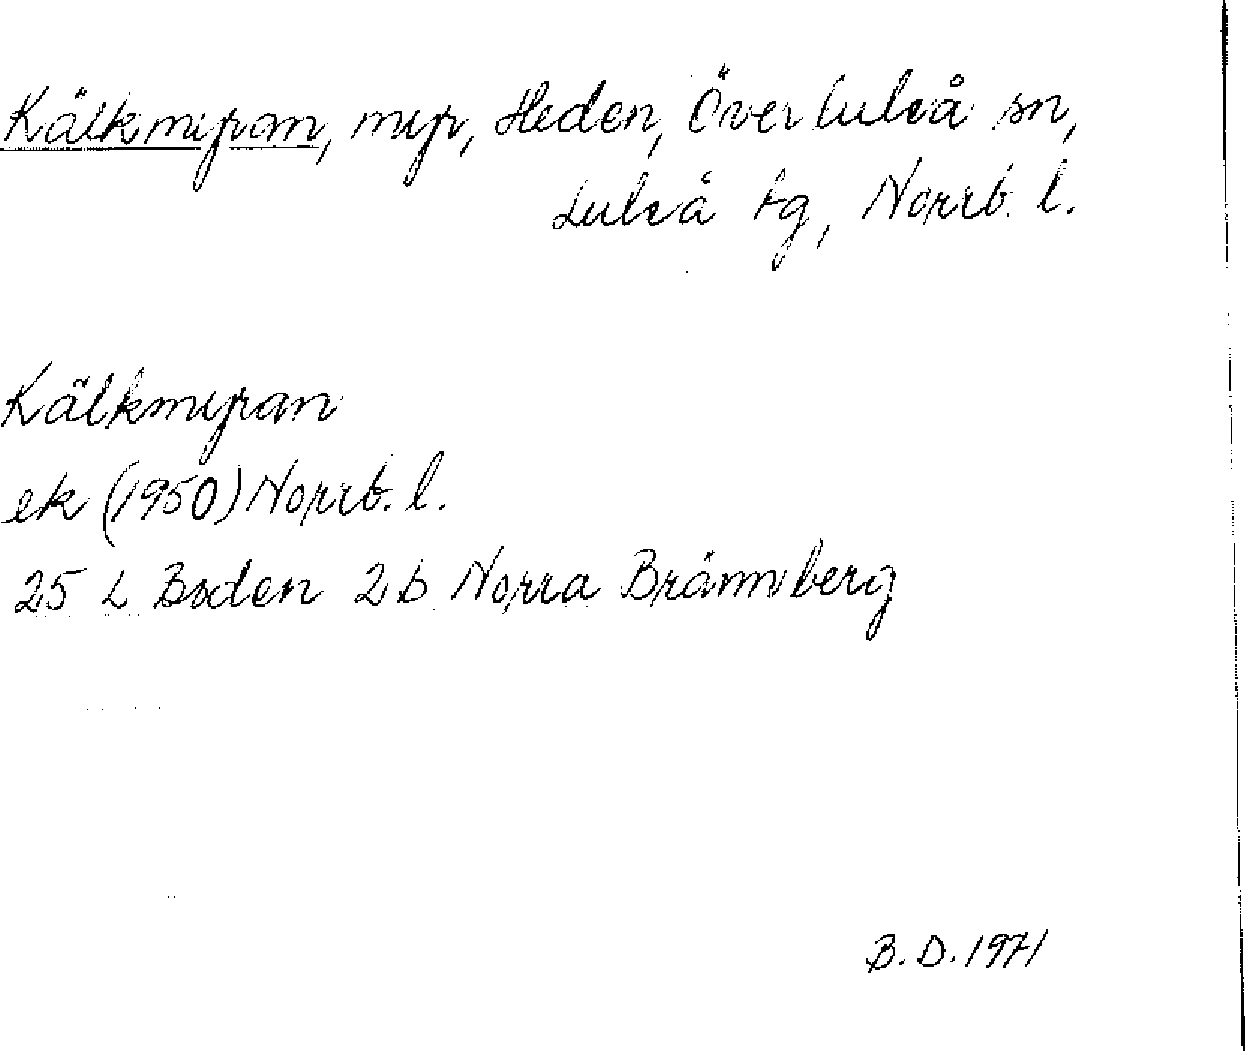 Kälkmyran, myr, Heden, Överluleå sn,
Luleå tg, Norrb. l.
Kälkmyran
ek (1950) Norrb. l.
25 L Boden 2b Norra Brännberg
B.D. 1971